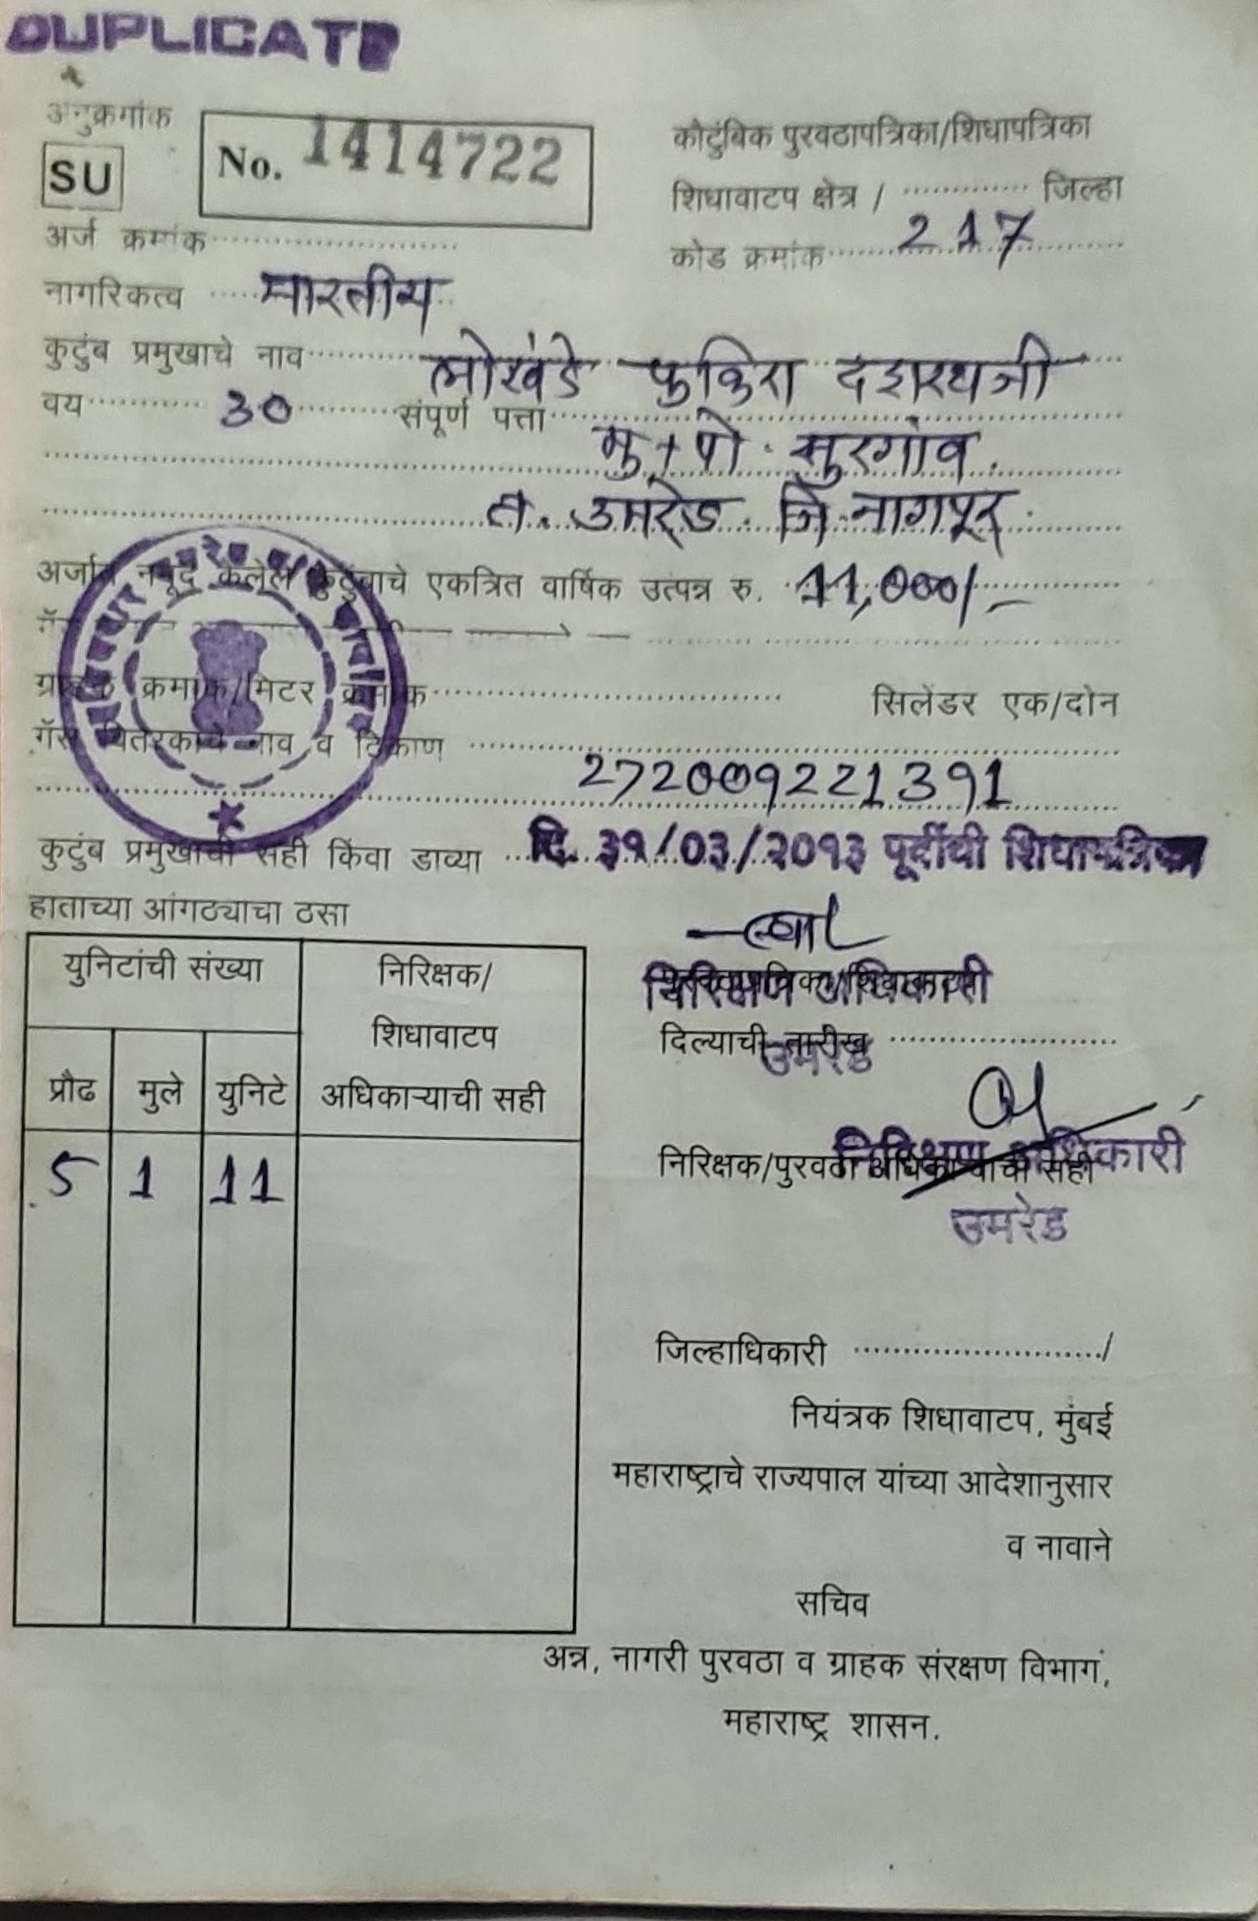 DUPLICATE
अनुक्रमांक
SU
No. 1414722
कौटुंबिक पुरवठापत्रिका/शिधापत्रिका
शिधावाटप क्षेत्र / ............. जिल्हा
कोड क्रमांक 217
अर्ज क्रमांक
नागरिकत्व भारतीय
कुटुंब प्रमुखाचे नाव लोखंडे फकिरा दशरथजी
वय 30 संपूर्ण पत्ता
मु + पो. सुरगांव.
त. उमरेड. जि. नागपूर.
अर्जात नमूद केलेले कुटुंबाचे एकत्रित वार्षिक उत्पन्न रु. 11,000/-
ग्राहक क्रमांक/मिटर क्रमांक सिलेंडर एक/दोन
गॅस वितरकाचे नाव व ठिकाण
272009221391
कुटुंब प्रमुखाची सही किंवा डाव्या दि. ३१/०३/२०१३ पूर्वीची शिधापत्रिका
हाताच्या आंगठ्याचा ठसा
युनिटांची संख्या
निरिक्षक/
शिधावाटप
अधिकाऱ्याची सही
प्रौढ मुले युनिटे
5 1 11
निरिक्षण अधिकारी
दिल्याची तारीख
उमरेड
निरिक्षण अधिकारी
निरिक्षक/पुरवठा अधिकाऱ्याची सही
उमरेड
जिल्हाधिकारी ......................../
नियंत्रक शिधावाटप, मुंबई
महाराष्ट्राचे राज्यपाल यांच्या आदेशानुसार
व नावाने
सचिव
अन्न, नागरी पुरवठा व ग्राहक संरक्षण विभागं,
महाराष्ट्र शासन.